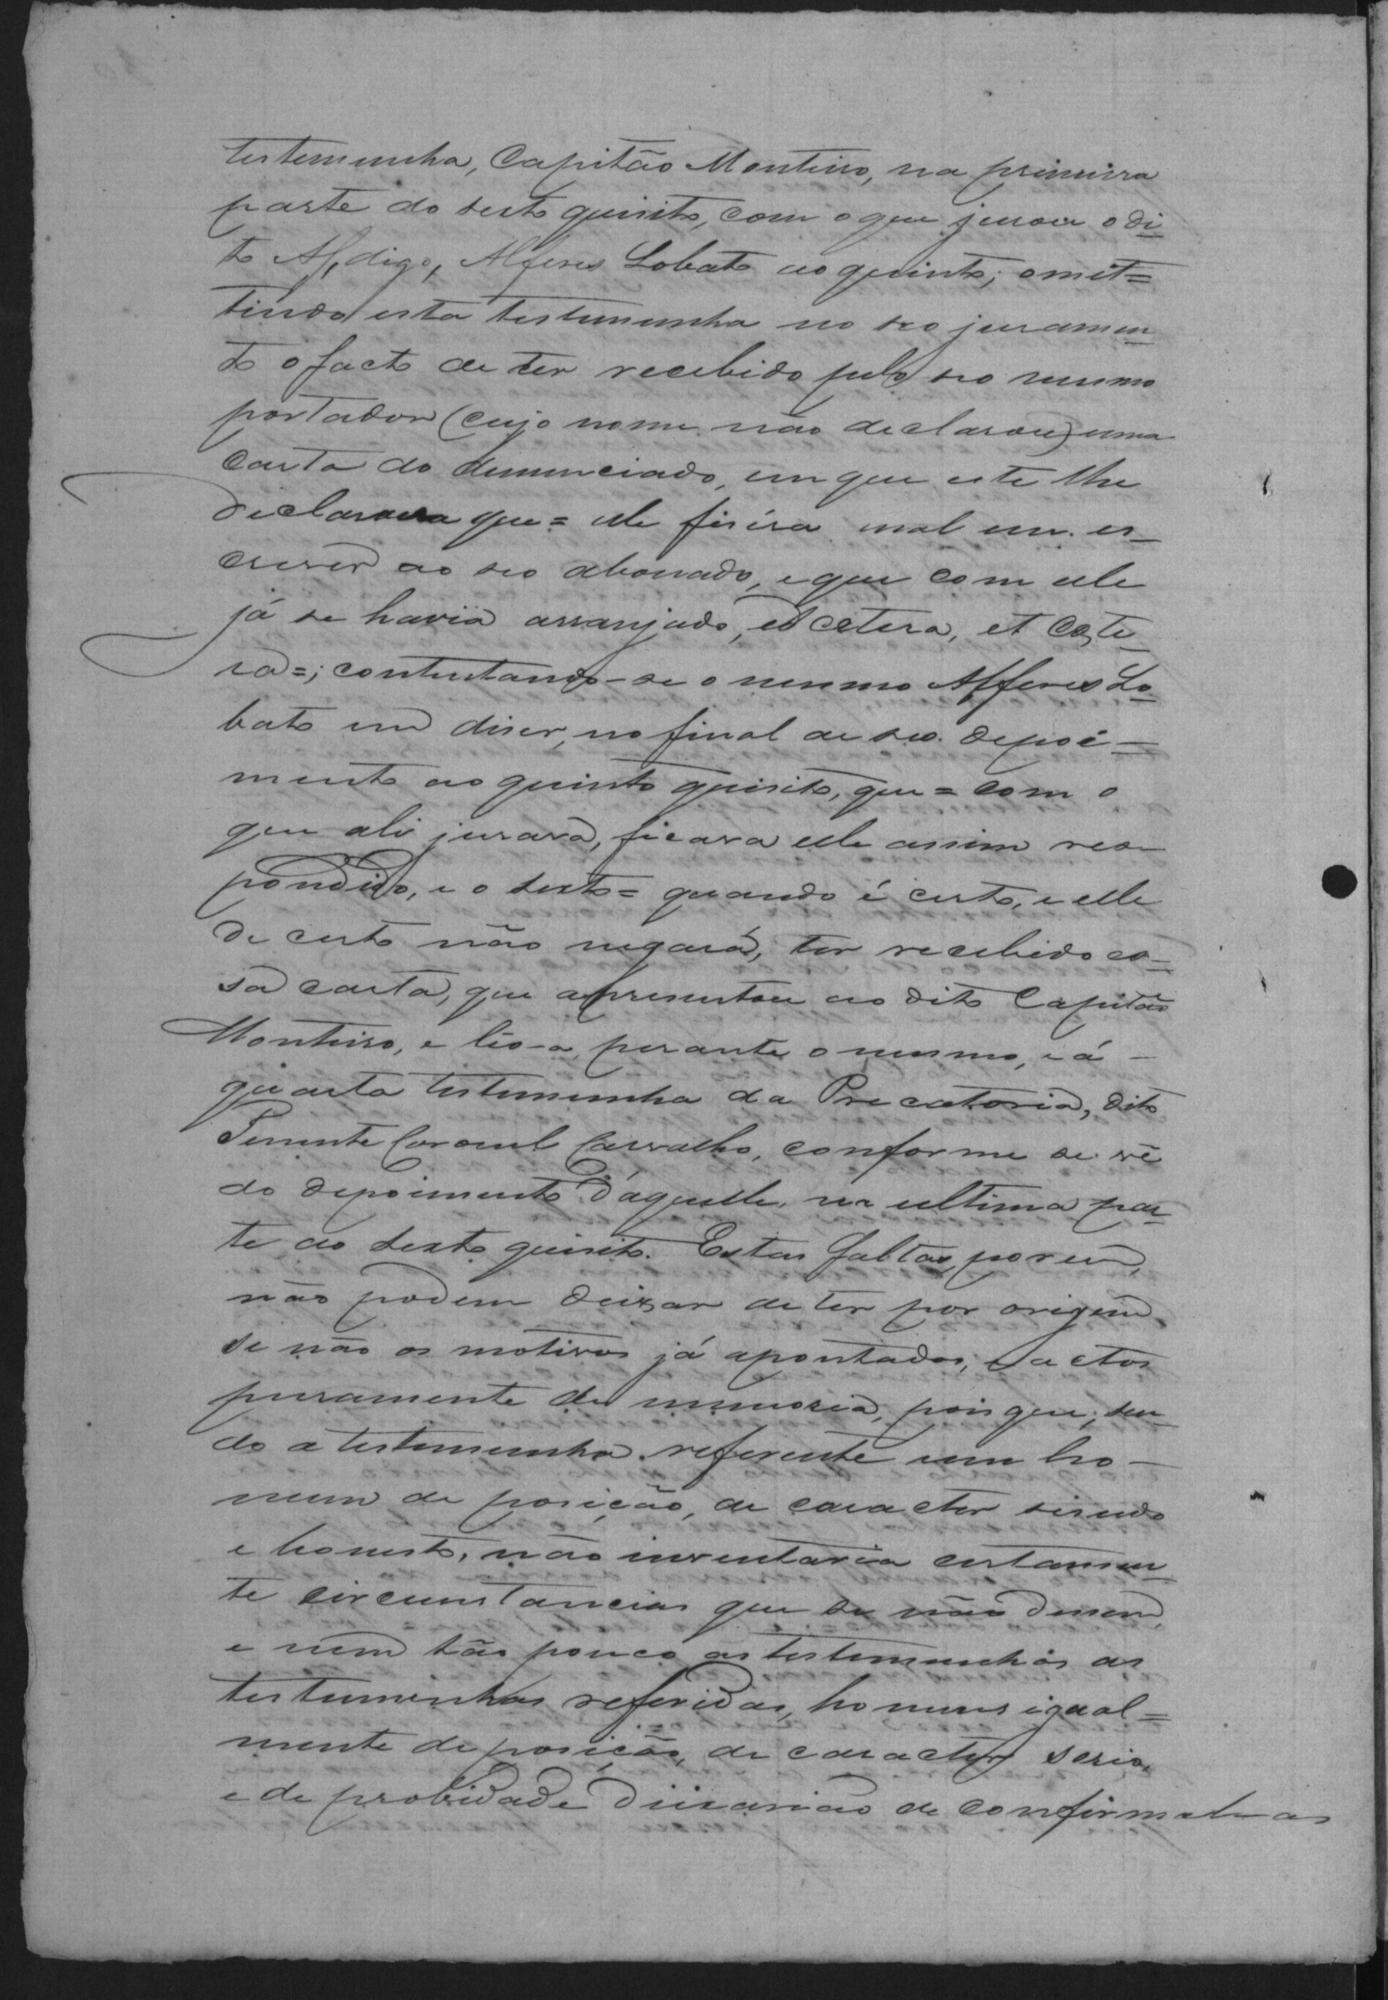 testemunha, Capitão Monteiro, na primeira
parte do sexto quisito, com o que jurou o di-
to Af, digo, Alferes Lobato ao quinto; omit=
tindo esta testemunha no seo juramen-
to o facto de ter recebido pelo seo mesmo
portador (cujo nome não declarou) uma
carta do denunciado, em que este lhe
declarava que= elle fizéra mal em es-
crever ao seo abonado, e que com elle
já se havia arranjado, et cetera, et cete-
ra=; contentando-se o mesmo Alferes Lo-
bato em diser, no final de seo depoi-
mento ao quinto quisito, que= com o
que ali jurara, ficara elle assim res-
pondido, e o sexto= quando é certo, e elle
de certo não negará, ter recebido es-
sa carta, que apresentou ao dito Capitão
Monteiro, e léo-a perante o mesmo, e á
quarta testemunha da Precatoria, dito
Tenente Coronel Carvalho, conforme se vê
do depoimento d'aquelle, na ultima par-
te do sexto quisito. Estas faltas, porém,
não podem deixar de ter por origem
se não os motivos já apontados, e actos
puramente de memoria, pois que, sen-
do a testemunha referente um ho-
mem de posição, de caracter sisudo
e honesto, não inventaria certamen-
te circunstancias que se não dessem,
e nem tão pouco as testemunhas as
testemunhas referidas, homens igual=
mente de posição, de caracter serio,
e de probidade deixarião de confirmal-as